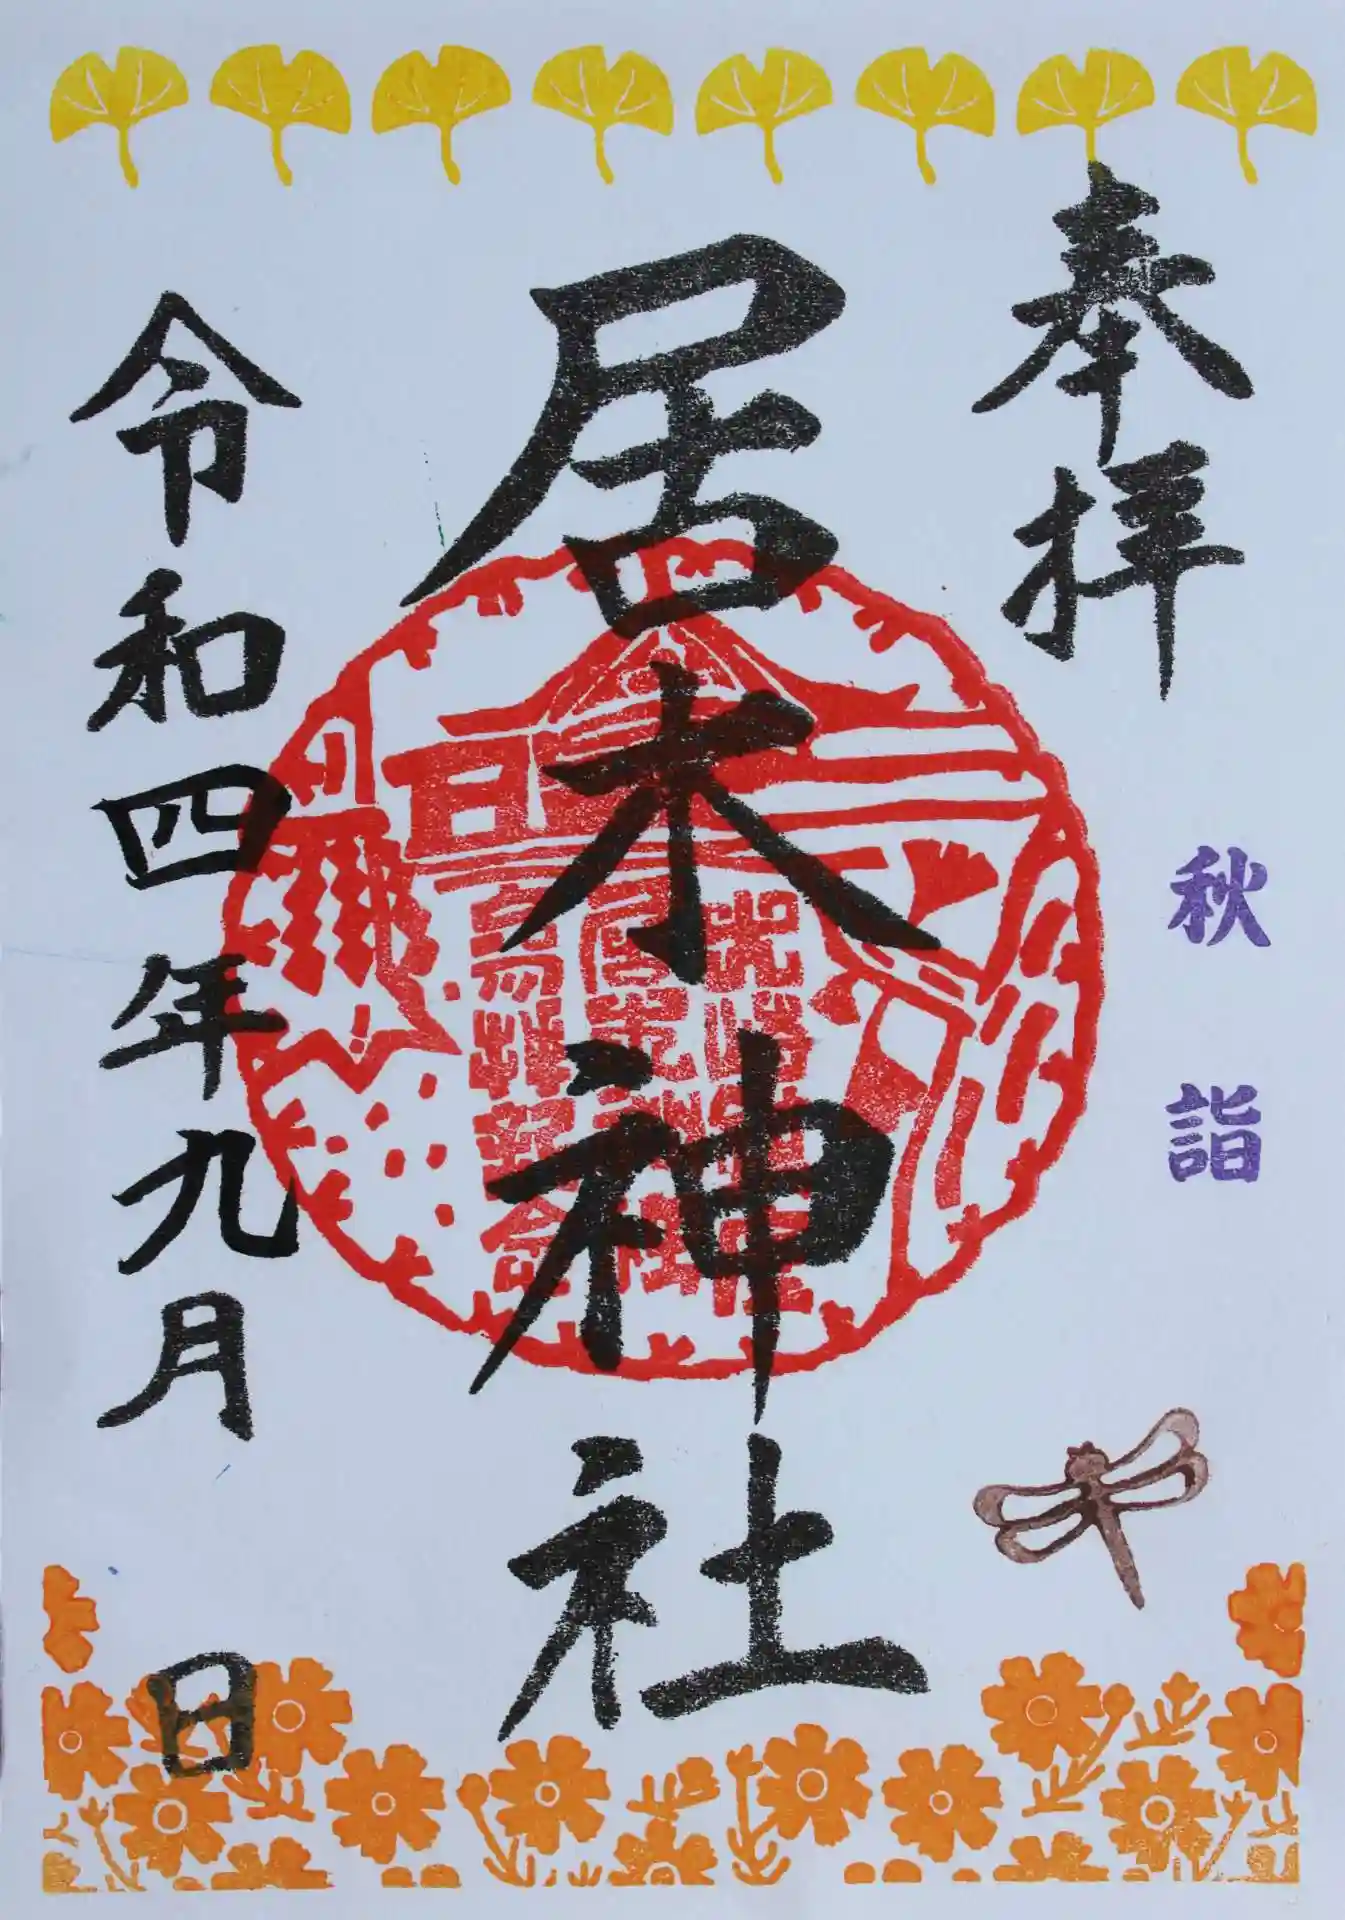 奉拝
秋詣
居木神社
令和四年九月 日